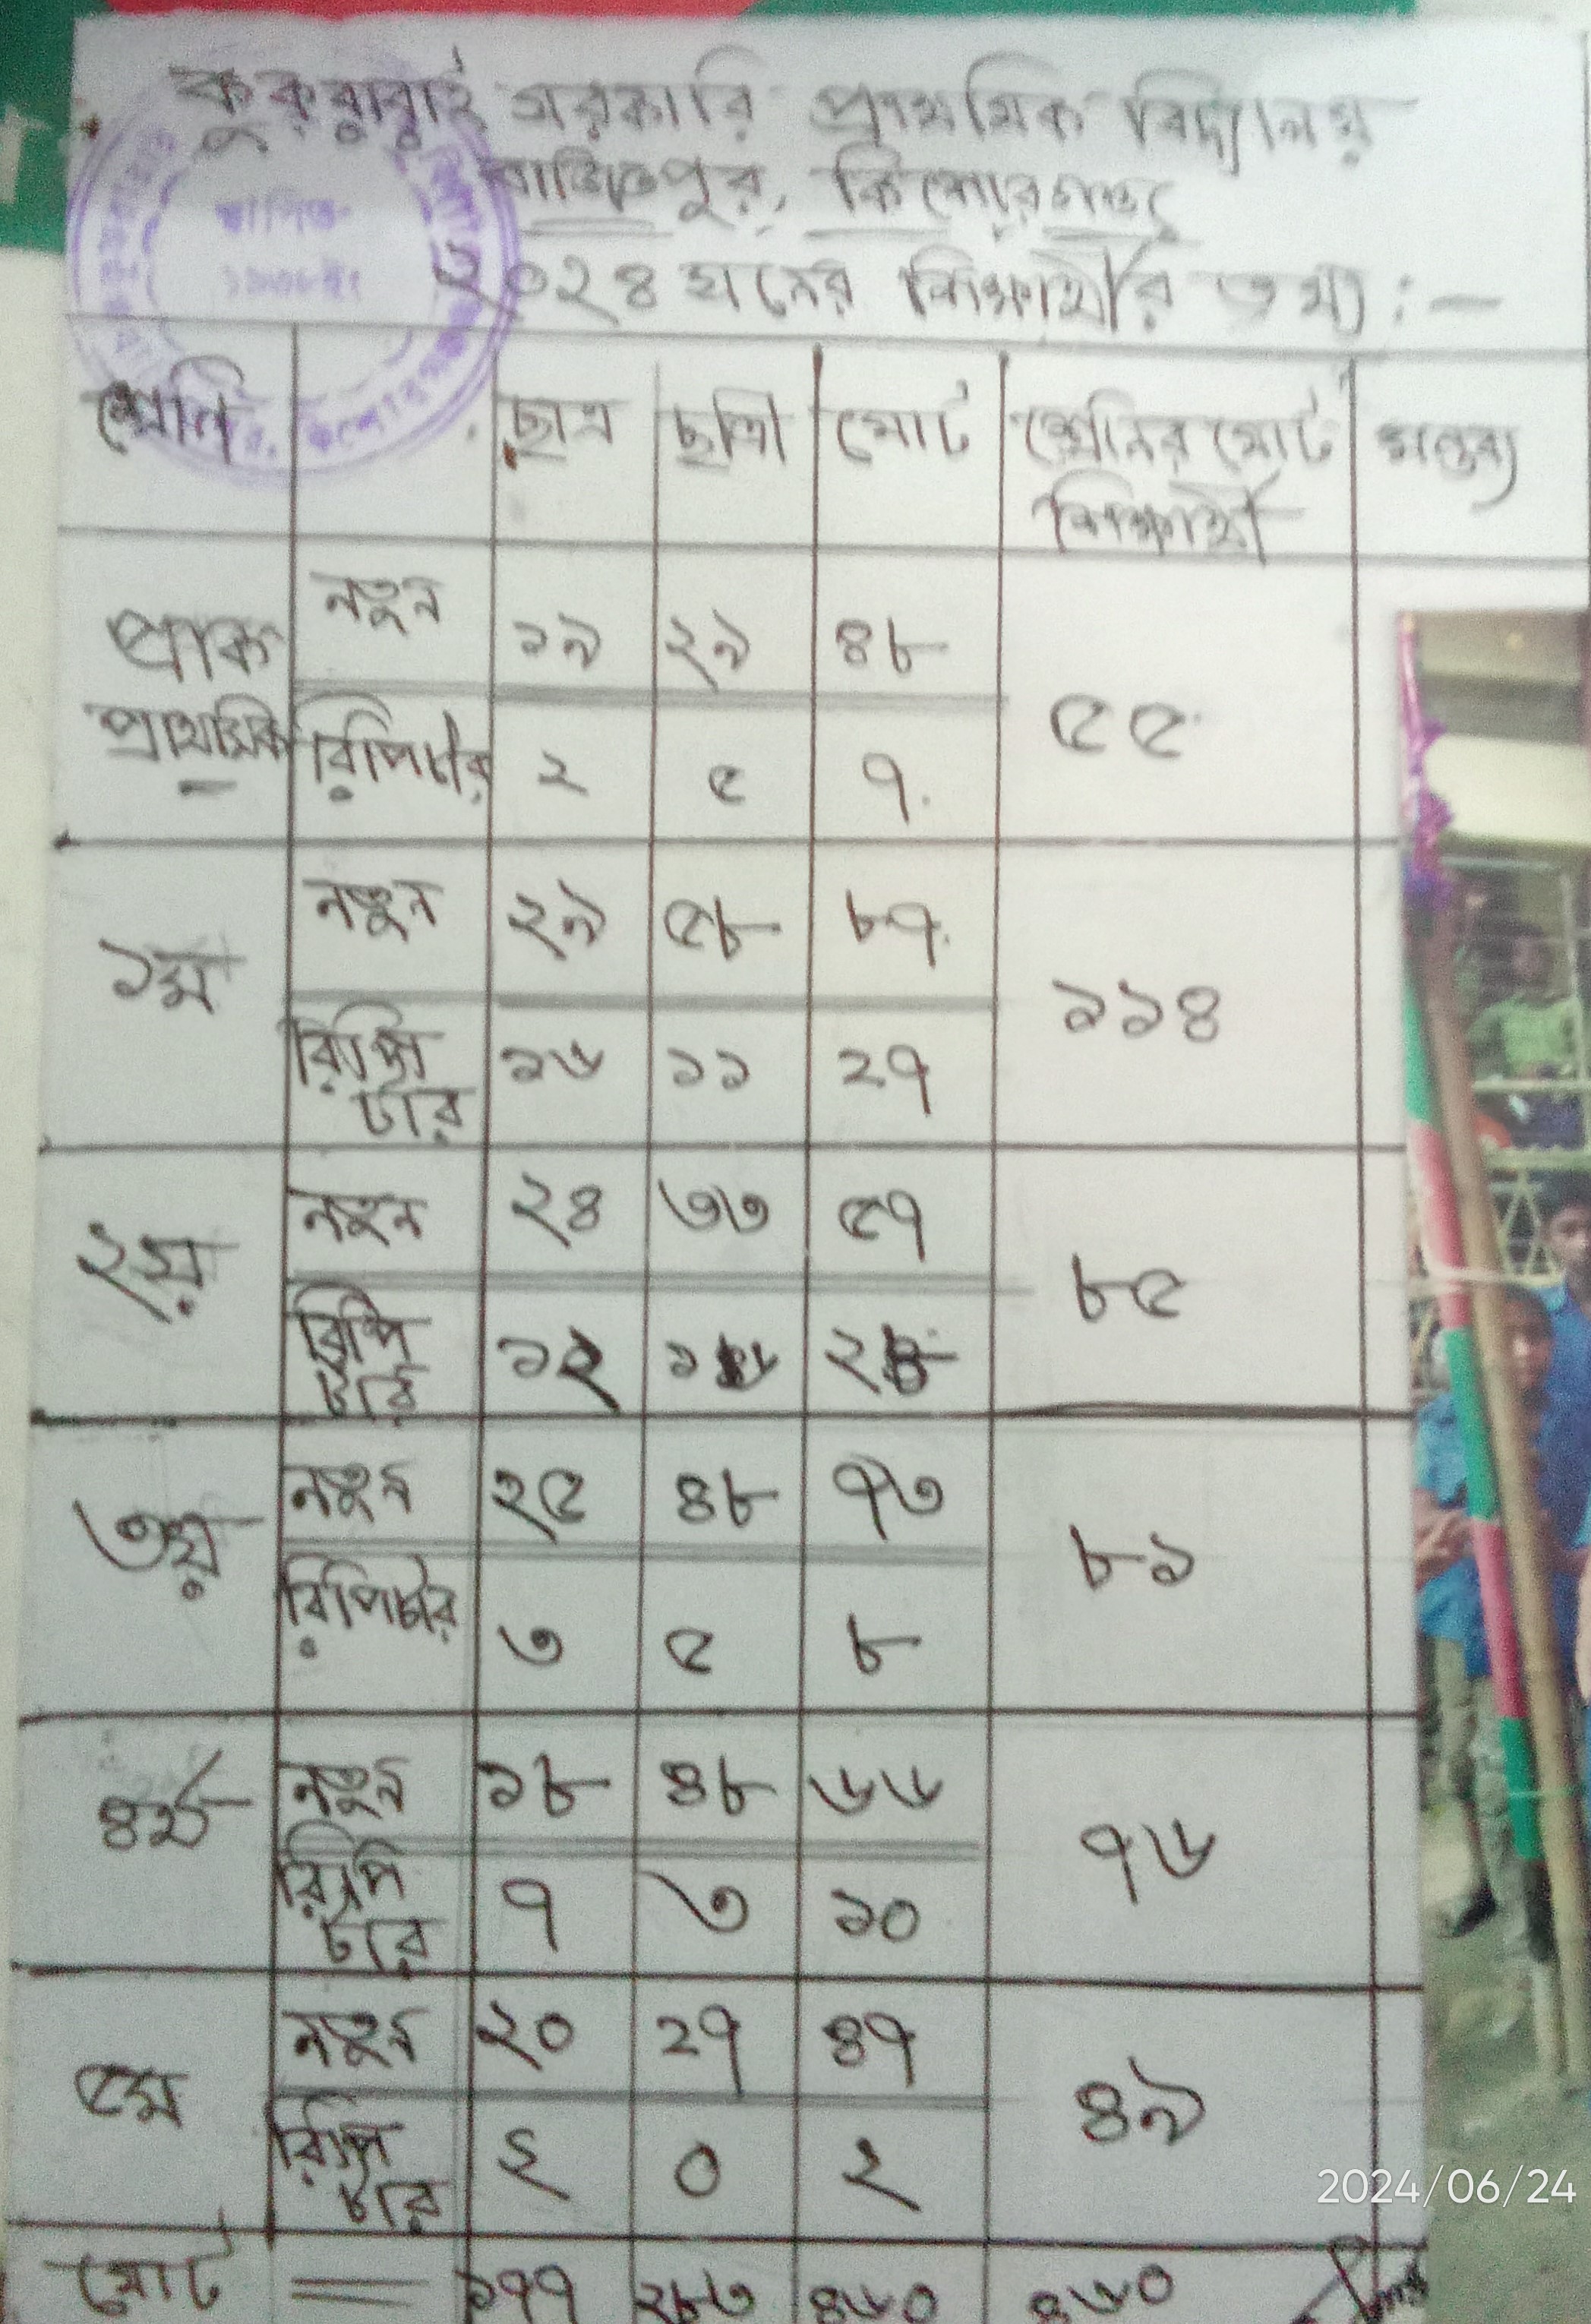 কুকরারাই সরকারি প্রাথমিক বিদ্যালয়
বাজিতপুর, কিশোরগঞ্জ
২০২৪ সনের শিক্ষার্থীর তথ্য :-
স্থাপিত
শ্রেনি ছাত্র ছাত্রী মোট শ্রেনির মোট মন্তব্য
শিক্ষার্থী
প্রাক নতুন ১৯ ২৯ ৪৮ ৫৫
প্রাথমিক রিপিটার ২ ৫ ৭
১ম নতুন ২৯ ৫৮ ৮৭ ১১৪
রিপি ১৬ ১১ ২৭
টার
২য় নতুন ২৪ ৩৩ ৫৭ ৮৫
রিপি ১২ ১৬ ২৮
টার
৩য় নতুন ২৫ ৪৮ ৭৩ ৮১
রিপিটার ৩ ৫ ৮
৪র্থ নতুন ১৮ ৪৮ ৬৬ ৭৬
রিপি ৭ ৩ ১০
টার
৫ম নতুন ২০ ২৭ ৪৭ ৪৯
রিপি ২ ০ ২
টার
মোট = ১৭৭ ২৮৩ ৪৬০ ৪৬০
2024/06/24